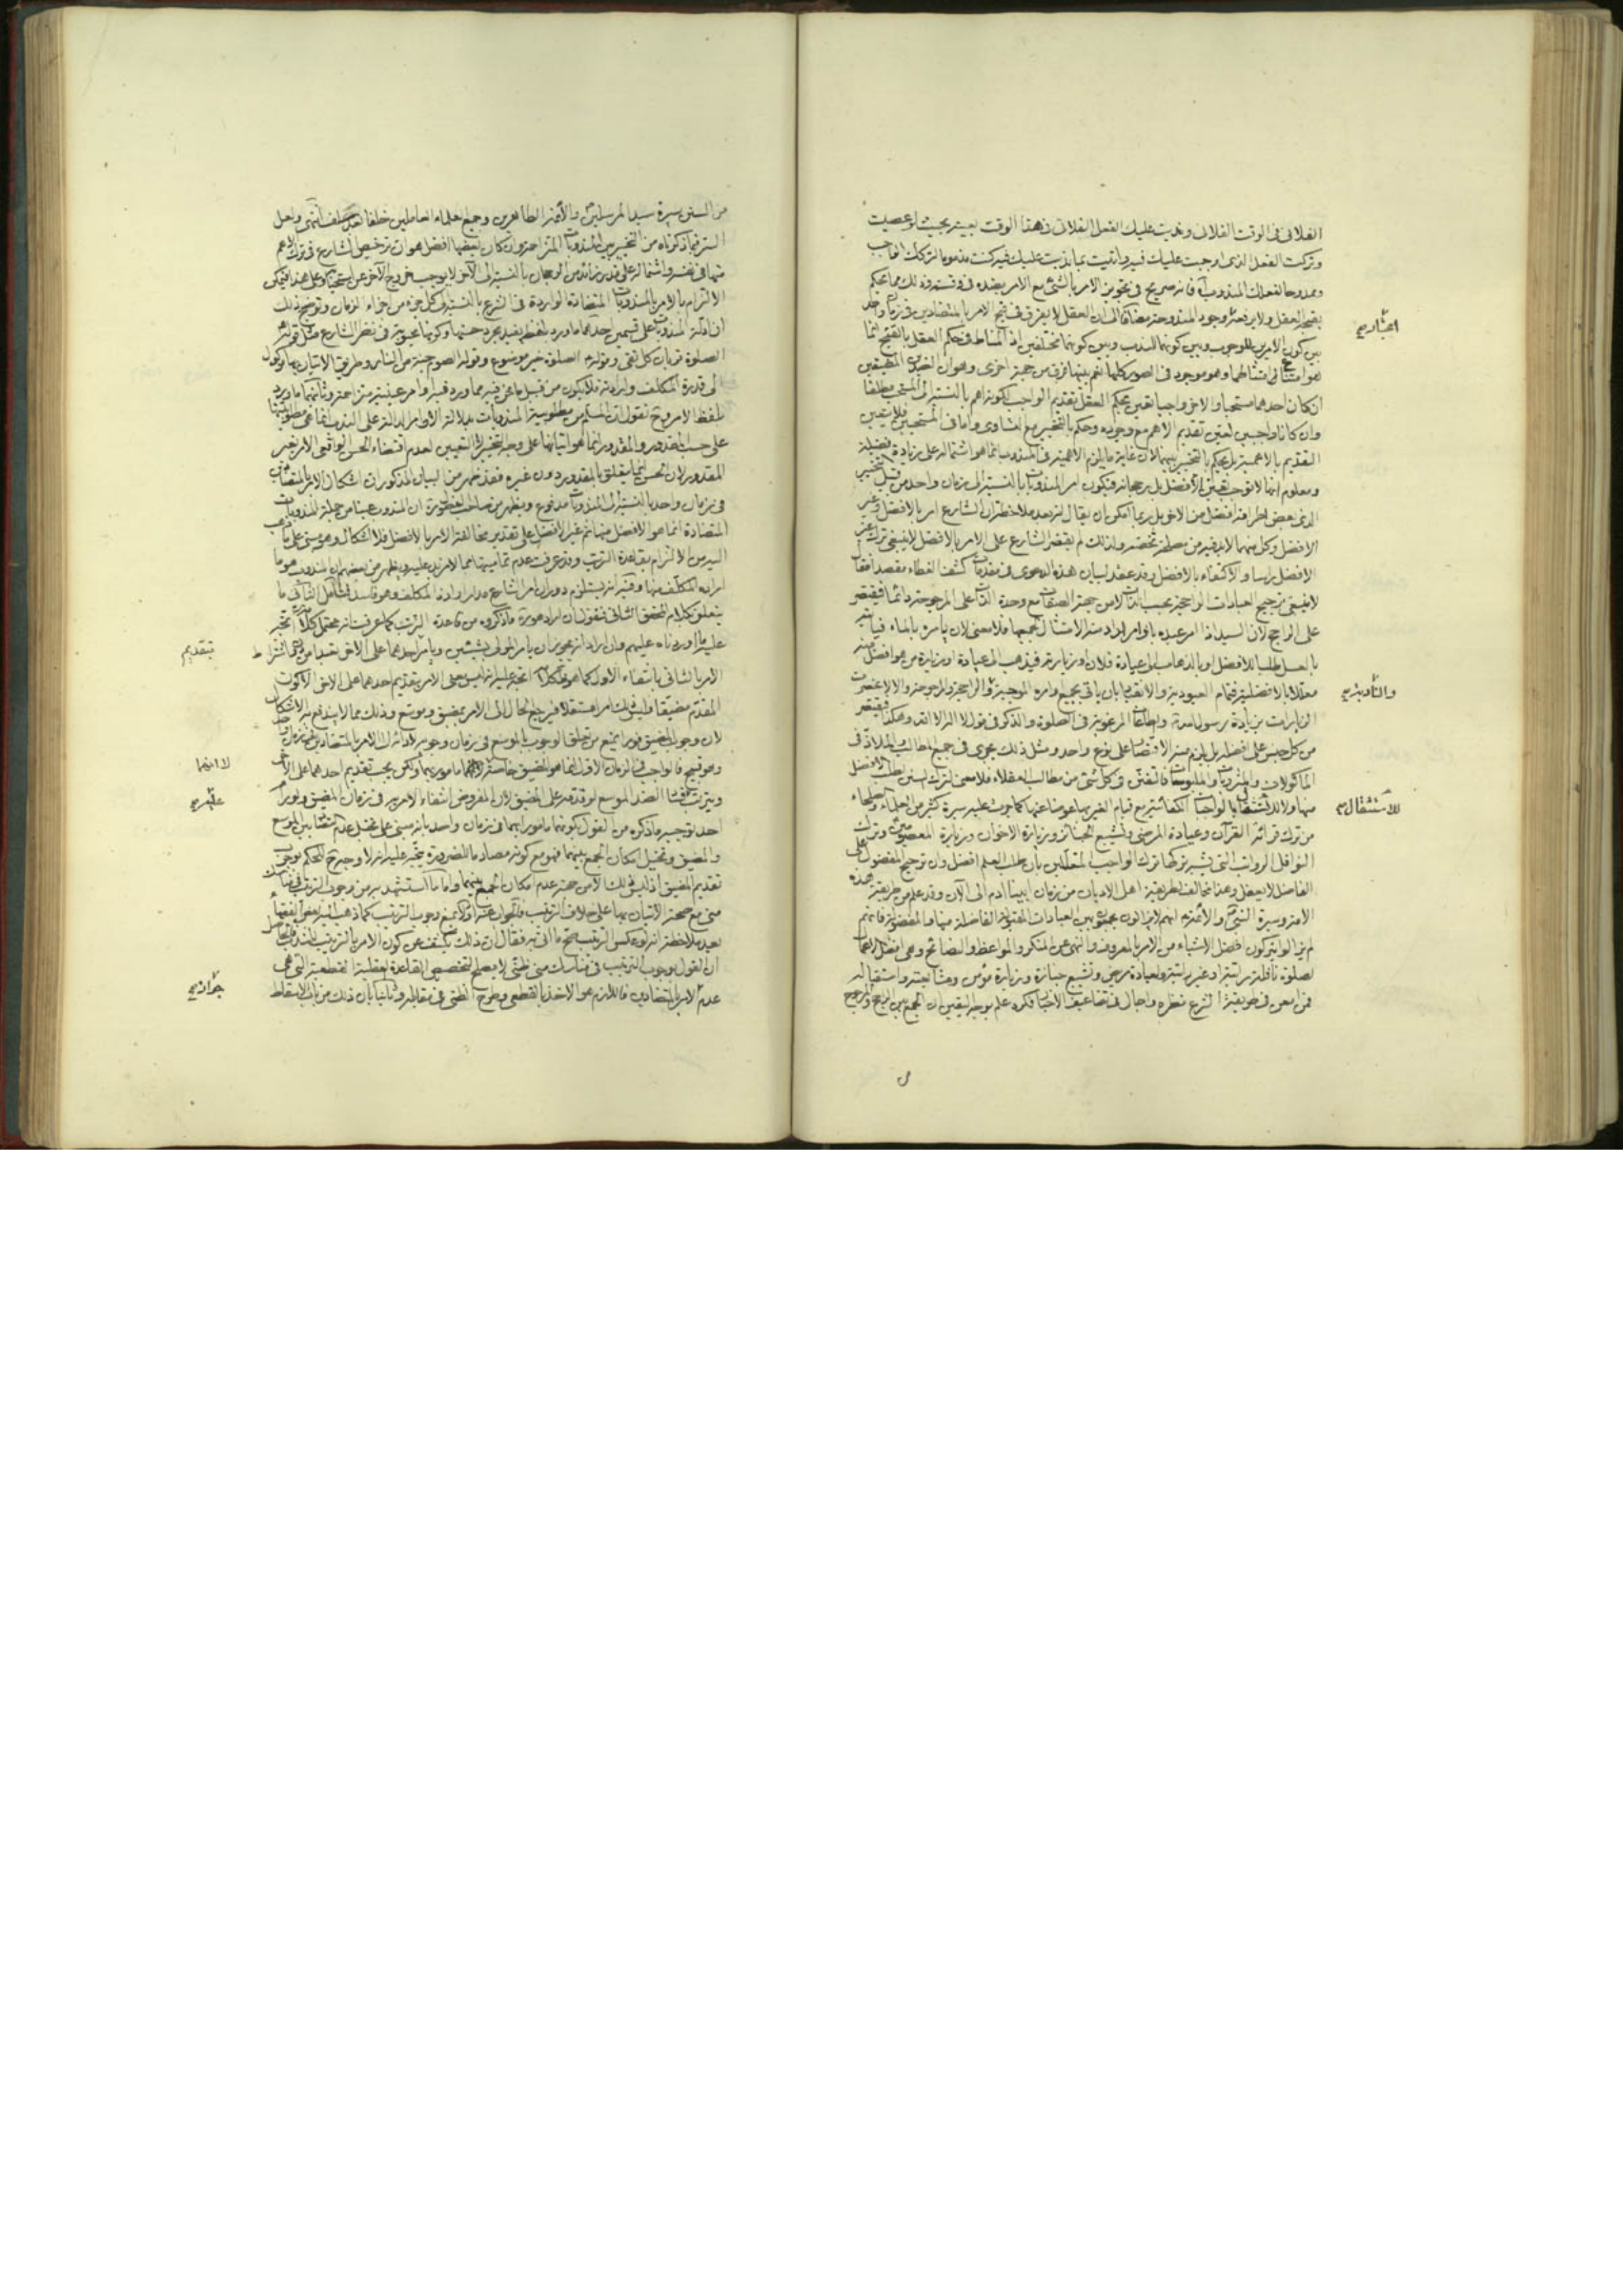 الفلانى فى الوقت الفلانى وندبت عليك الفعل الفلانى فى هذا الوقت بعينه بحيث لو عصيت
وتركت الفعل الذى اوجبت عليك فيه واتيت بما ندبت عليك فيه كنت مذموما لتركك الواجب
وممدوحا لفعلك المندوب فانه صريح فى تجويز الامر بالشئ مع الامر بضده فى وقته وذلك مما يحكم
بقبحه العقل ولا يرفعه وجود المندوحة مضافا الى ان العقل لا يفرق فى قبح الامر بالمتضادين فى زمان واحد
بين كون الامرين للوجوب وبين كونهما للندب وبين كونهما مختلفين اذ المناط فى حكم العقل بالقبح انما
هو امتناع امتثالهما وهو موجود فى الصور كلها نعم بينها فرق من جهة اخرى وهو ان الضدين المضيقين
ان كان احدهما مستحبا والاخر واجبا تعين بحكم العقل تقديم الواجب لكونه اهم بالنسبة الى المستحب مطلقا
وان كانا واجبين تعين تقديم الاهم مع وجوده وحكم بالتخيير مع التساوى واما فى المستحبين فلا يتعين
التقديم بالاهمية بل يحكم بالتخيير بينهما لان غاية ما يلزم الاهمية فى المندوب انما هو اشتماله على زيادة فضيلة
ومعلوم انها لا توجب تعين الافضل بل رجحانه فيكون امر المندوبات بالنسبة الى زمان واحد من قبيل التخيير
الذى بعض اطرافه افضل من الاخر بل ربما امكن ان يقال انه بعد ملاحظة ان الشارع امر بالافضل وغير
الافضل وكل منهما لا بد فيه من مصلحة تخصه ولذلك لم يقتصر الشارع على الامر بالافضل لا ينبغى ترك غير
الافضل راسا والاكتفاء بالافضل وقد عقد لبيان هذه الدعوى فى مقدمات كشف الغطاء مقصدا فقال
لا ينبغى ترجيح العبادات الراجحة بحسب الذات لا من جهة الصفات مع وحدة الذات على المرجوحة دائما فيقتصر
على الراجح لان السيد اذا امر عبده باوامر اراد منه الامتثال بجميعها فلا معنى لان يامره بالماء فياتيه
بالعسل طلبا للافضل او بالذهاب الى عيادة فلان او زيارته فيذهب الى عيادة او زيارة من هو افضل منه
معللا بالافضلية فتمام العبودية والانقياد بان ياتى بجميع اوامره الموجبة والراجحة والمرجوحة والا لاقتصرت
الزيارات بزيارة رسول الله ص والطاعات المرغوبة فى الصلوة والذكر فى قول لا اله الا الله وهكذا فيقتصر
من كل جنس على افضله بل يلزم منه الاقتصار على نوع واحد ومثل ذلك يجرى فى جميع المطالب والملاذ فى
الماكولات والمشروبات والملبوسات فالتفنن فى كل شئ من مطالب العقلاء فلا معنى لترك السنن لطلب الافضل
منها ولا للاشتغال بالواجبات الكفائية مع قيام الغير بها عوضا عنها كما جرت عليه سيرة كثير من العلماء والصلحاء
من ترك قرائة القرآن وعيادة المرضى وتشييع الجنائز وزيارة الاخوان وزيارة المعصومين وترك
النوافل الرواتب التى يشبه تركها ترك الواجب المتعللين بان طلب العلم افضل وان ترجيح المفضول على
الفاضل لا يعقل وهذا مخالف لطريقة اهل الاديان من زمان ابينا ادم الى الان وقد علم من طريقة هذه
الامة وسيرة النبى ص والائمة ع انهم لا يزالون يجمعون بين العبادات المقبولة الفاضلة منها والمفضولة فانهم
لم يزالوا يتركون افضل الاشياء من الامر بالمعروف والنهى عن المنكر والمواعظ والنصائح وهى افضل الاعمال
لصلوة نافلة راتبة او غير راتبة ولعيادة مريض وتشييع جنازة وزيارة مؤمن ومشايعته واستقباله
فمن امعن فى طريقة الشرع نظره واجال فى تضاعيف الاخبار فكره علم بوجه اليقين ان الجمع بين الراجح والمرجوح
اعتبار صح
والتأدية صح
للاشتغال صح
من السنن سيرة سيد المرسلين والائمة الطاهرين وجميع العلماء العاملين خلفا بعد سلف انتهى ولعل
السر فيما ذكرناه من التخيير بين المندوبات المتزاحمة وان كان بعضها افضل هو ان ترخيص الشارع فى ترك الاهم
منها فى نفسه واشتماله على قدر زائد من الرجحان بالنسبة الى الآخر لا يوجب خروج الآخر عن استحبابه وعلى هذا فيمكن
الالتزام بالامر بالمندوبات المتضادة الواردة فى الشرع بالنسبة الى كل جزء من اجزاء الزمان وتوضيح ذلك
ان ادلة المندوبات على قسمين احدهما ما ورد بلفظ يفيد مجرد حسنها وكونها محبوبة فى نظر الشارع مثل قوله
الصلوة قربان كل تقى وقوله الصلوة خير موضوع وقوله الصوم جنة من النار وطريق الاتيان بها موكول
الى قدرة المكلف وارادته فلا يكون من قبيل ما نحن فيه مما ورد فيه اوامر عينية متزاحمة وثانيهما ما ورد
بلفظ الامر وح نقول ان المسلم من مطلوبية المندوبات بدلالة الاوامر الدالة على الندب انما هى مطلوبيتها
على حسب المقدور والمقدور انما هو اتيانها على وجه التخيير لا التعيين لعدم اقتضاء الحسن الواقعى الامر بغير
المقدور لان الحسن انما يتعلق بالمقدور دون غيره فقد ظهر من البيان المذكور ان اشكال الامر بالمتضادين
فى زمان واحد بالنسبة الى المندوبات مدفوع ويظهر من صاحب ان المندوب عينا من جملة المندوبات
المتضادة انما هو الافضل منها ثم غير الافضل على تقدير مخالفة الامر بالافضل فلا اشكال وهو مبنى على ما ذهب
اليه من الالتزام بقاعدة الترتب وقد عرفت عدم تماميتها
اراده المكلف منها وفيه انه يستلزم دوران امر الشارع مدار ارادة المكلف وهو فاسد فتأمل الثانى ما
يتعلق بكلام المحقق الثانى فنقول ان اراد هو ره ما ذكروه من قاعدة الترتب كما عرفت انه محتمل كلامه اتجه
عليه ما اوردناه عليهم وان اراد انه يجوز ان يامر المولى بشيئين ويامر احدهما على الاخر
الامر بالثانى بانتفاء الاول كما هو ظ كلامه اتجه عليه انه ليس معنى الامر بتقديم احدهما على الاخر الا كون
المقدم مضيقا وليس ذلك امرا مستقلا فيرجع الحال الى الامر بمضيق وموسع وذلك مما لا يندفع به الاشكال
لان وجوب المضيق فورا يمنع من تعلق الوجوب بالموسع فى زمان وجوبه
وهو قبيح فالواجب فى الزمان الاول انما هو المضيق خاصة
احد توجيه ما ذكره من القول بكونهما مامورا بهما فى زمان واحد بانه مبنى على تخيل عدم التنافى بين الموسع
والمضيق وتخيل امكان الجمع بينهما فهو مع كونه مصادما للضرورة يتجه عليه انه لا وجه ح للحكم بوجوب
تقديم المضيق اذ ليس ذلك الا من جهة عدم امكان الجمع بينهما واما ما استشهد به من وجوب الترتيب فى مناسك
منى مع صحة الاتيان بها على خلاف الترتيب فالجواب عنه اولا بمنع وجوب الترتيب كما ذهب اليه بعض الفقهاء
بعد ملاحظة انه لو عكس الترتيب صح ما اتى به فقال ان ذلك يكشف عن كون الامر بالترتيب للندب فالحاصل
ان القول بوجوب الترتيب فى مناسك منى ظنى لا يصلح لتخصيص القاعدة العقلية القطعية التى هى
عدم الامر بالمتضادين فاللازم هو الاخذ بالقطعى وطرح الظنى فى مقابله وثانيا بان ذلك من باب الاسقاط
بتقديم
لا انهما
عليه صح
جواز صح